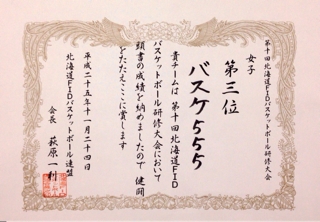 第十回北海道FIDバスケットボール研修大会
女子
第三位
バスケ555
貴チームは第十回北海道FID
バスケットボール研修大会において
頭書の成績を納めましたので健闘
をたたえここに賞します
平成二十五年十一月二十四日
北海道FIDバスケットボール連盟
会長 萩原一利